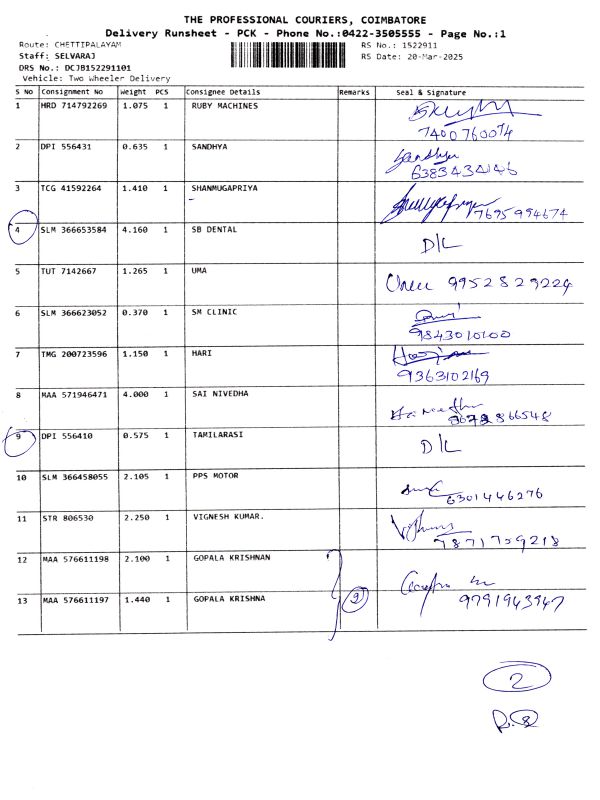 THE PROFESSIONAL COURIERS, COIMBATORE
Delivery Runsheet - PCK - Phone No.:0422-3505555 - Page No.:1
Route: CHETTIPALAYAM RS No.: 1522911
Staff: SELVARAJ RS Date: 20-Mar-2025
DRS No.: DCJB152291101
Vehicle: Two Wheeler Delivery
S No Consignment No Weight PCS Consignee Details Remarks Seal & Signature
1 HRD 714792269 1.075 1 RUBY MACHINES
7400760074
2 DPI 556431 0.635 1 SANDHYA Sandhya
6383434146
3 TCG 41592264 1.410 1 SHANMUGAPRIYA 7695994674
4 SLM 366653584 4.160 1 SB DENTAL D/L
5 TUT 7142667 1.265 1 UMA 9952829224
6 SLM 366623052 0.370 1 SM CLINIC
9843010100
7 TMG 200723596 1.150 1 HARI
9363102169
8 MAA 571946471 4.000 1 SAI NIVEDHA
9 DPI 556410 0.575 1 TAMILARASI D/L
10 SLM 366458055 2.105 1 PPS MOTOR 6301446276
11 STR 806530 2.250 1 VIGNESH KUMAR.
7871759218
12 MAA 576611198 2.100 1 GOPALA KRISHNAN
13 MAA 576611197 1.440 1 GOPALA KRISHNA 2 9791943947
2